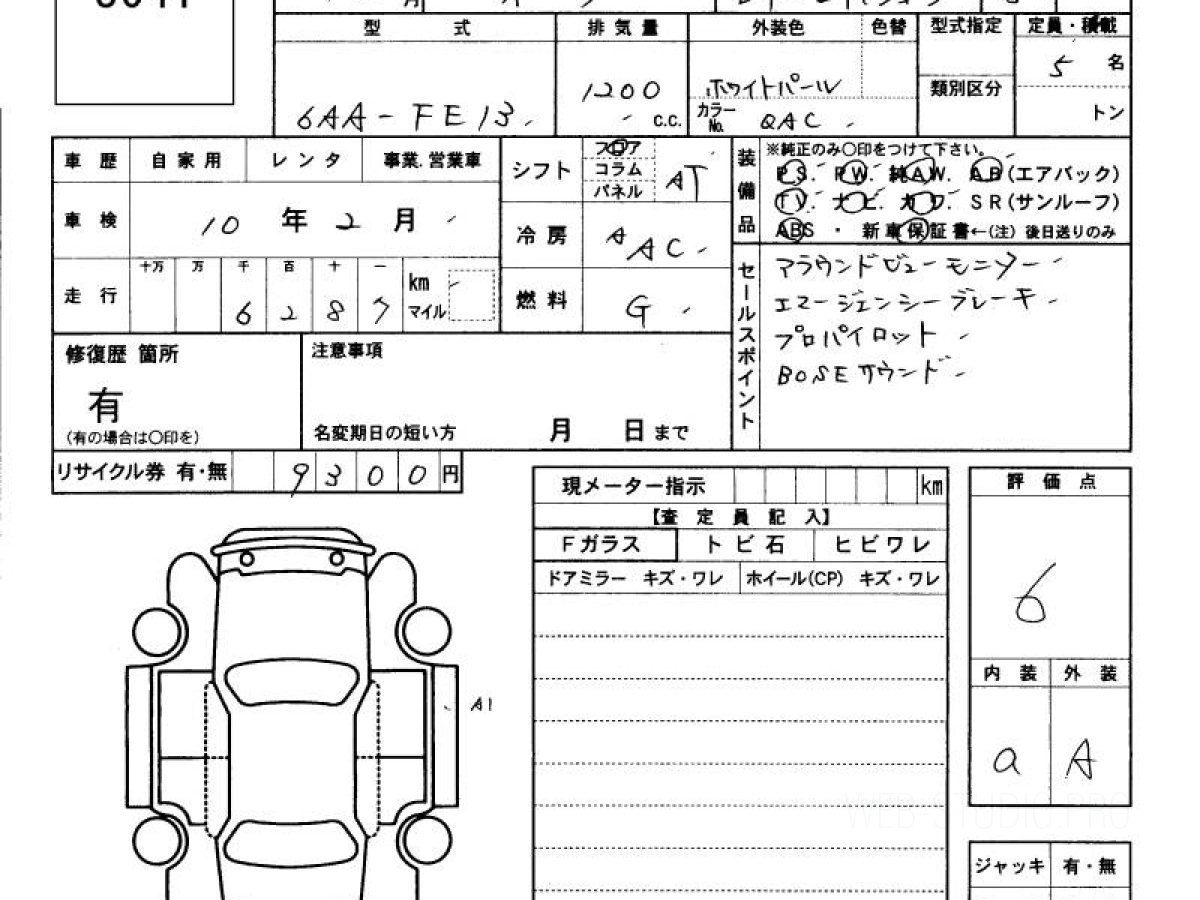 型 式 排気量 外装色 色替 型式指定 定員・積載
6AA-FE13 1200 c.c. ホワイトパール カラーNo. QAC 類別区分 5 名 トン
車歴 自家用 レンタ 事業.営業車 シフト フロア コラム パネル AT
車検 10 年 2 月 冷房 AAC
走行 十万 万 千 百 十 一 km マイル 燃料 G
6 2 8 7
装備品 ※純正のみ〇印をつけて下さい。
PS. PW. 純AW. AB(エアバック)
TV. ナビ. カワ. SR(サンルーフ)
ABS ・ 新車保証書←(注) 後日送りのみ
セールスポイント
アラウンドビューモニター
エマージェンシーブレーキ
プロパイロット
BOSEサウンド
修復歴 箇所 注意事項
有
(有の場合は〇印を) 名変期日の短い方 月 日 まで
リサイクル券 有・無 9300 円
現メーター指示 km
【査 定 員 記 入】
Fガラス トビ石 ヒビワレ
ドアミラー キズ・ワレ ホイール(CP) キズ・ワレ
A1
評価点
6
内装 外装
a A
WEB-STUDIO.PRO
ジャッキ 有・無